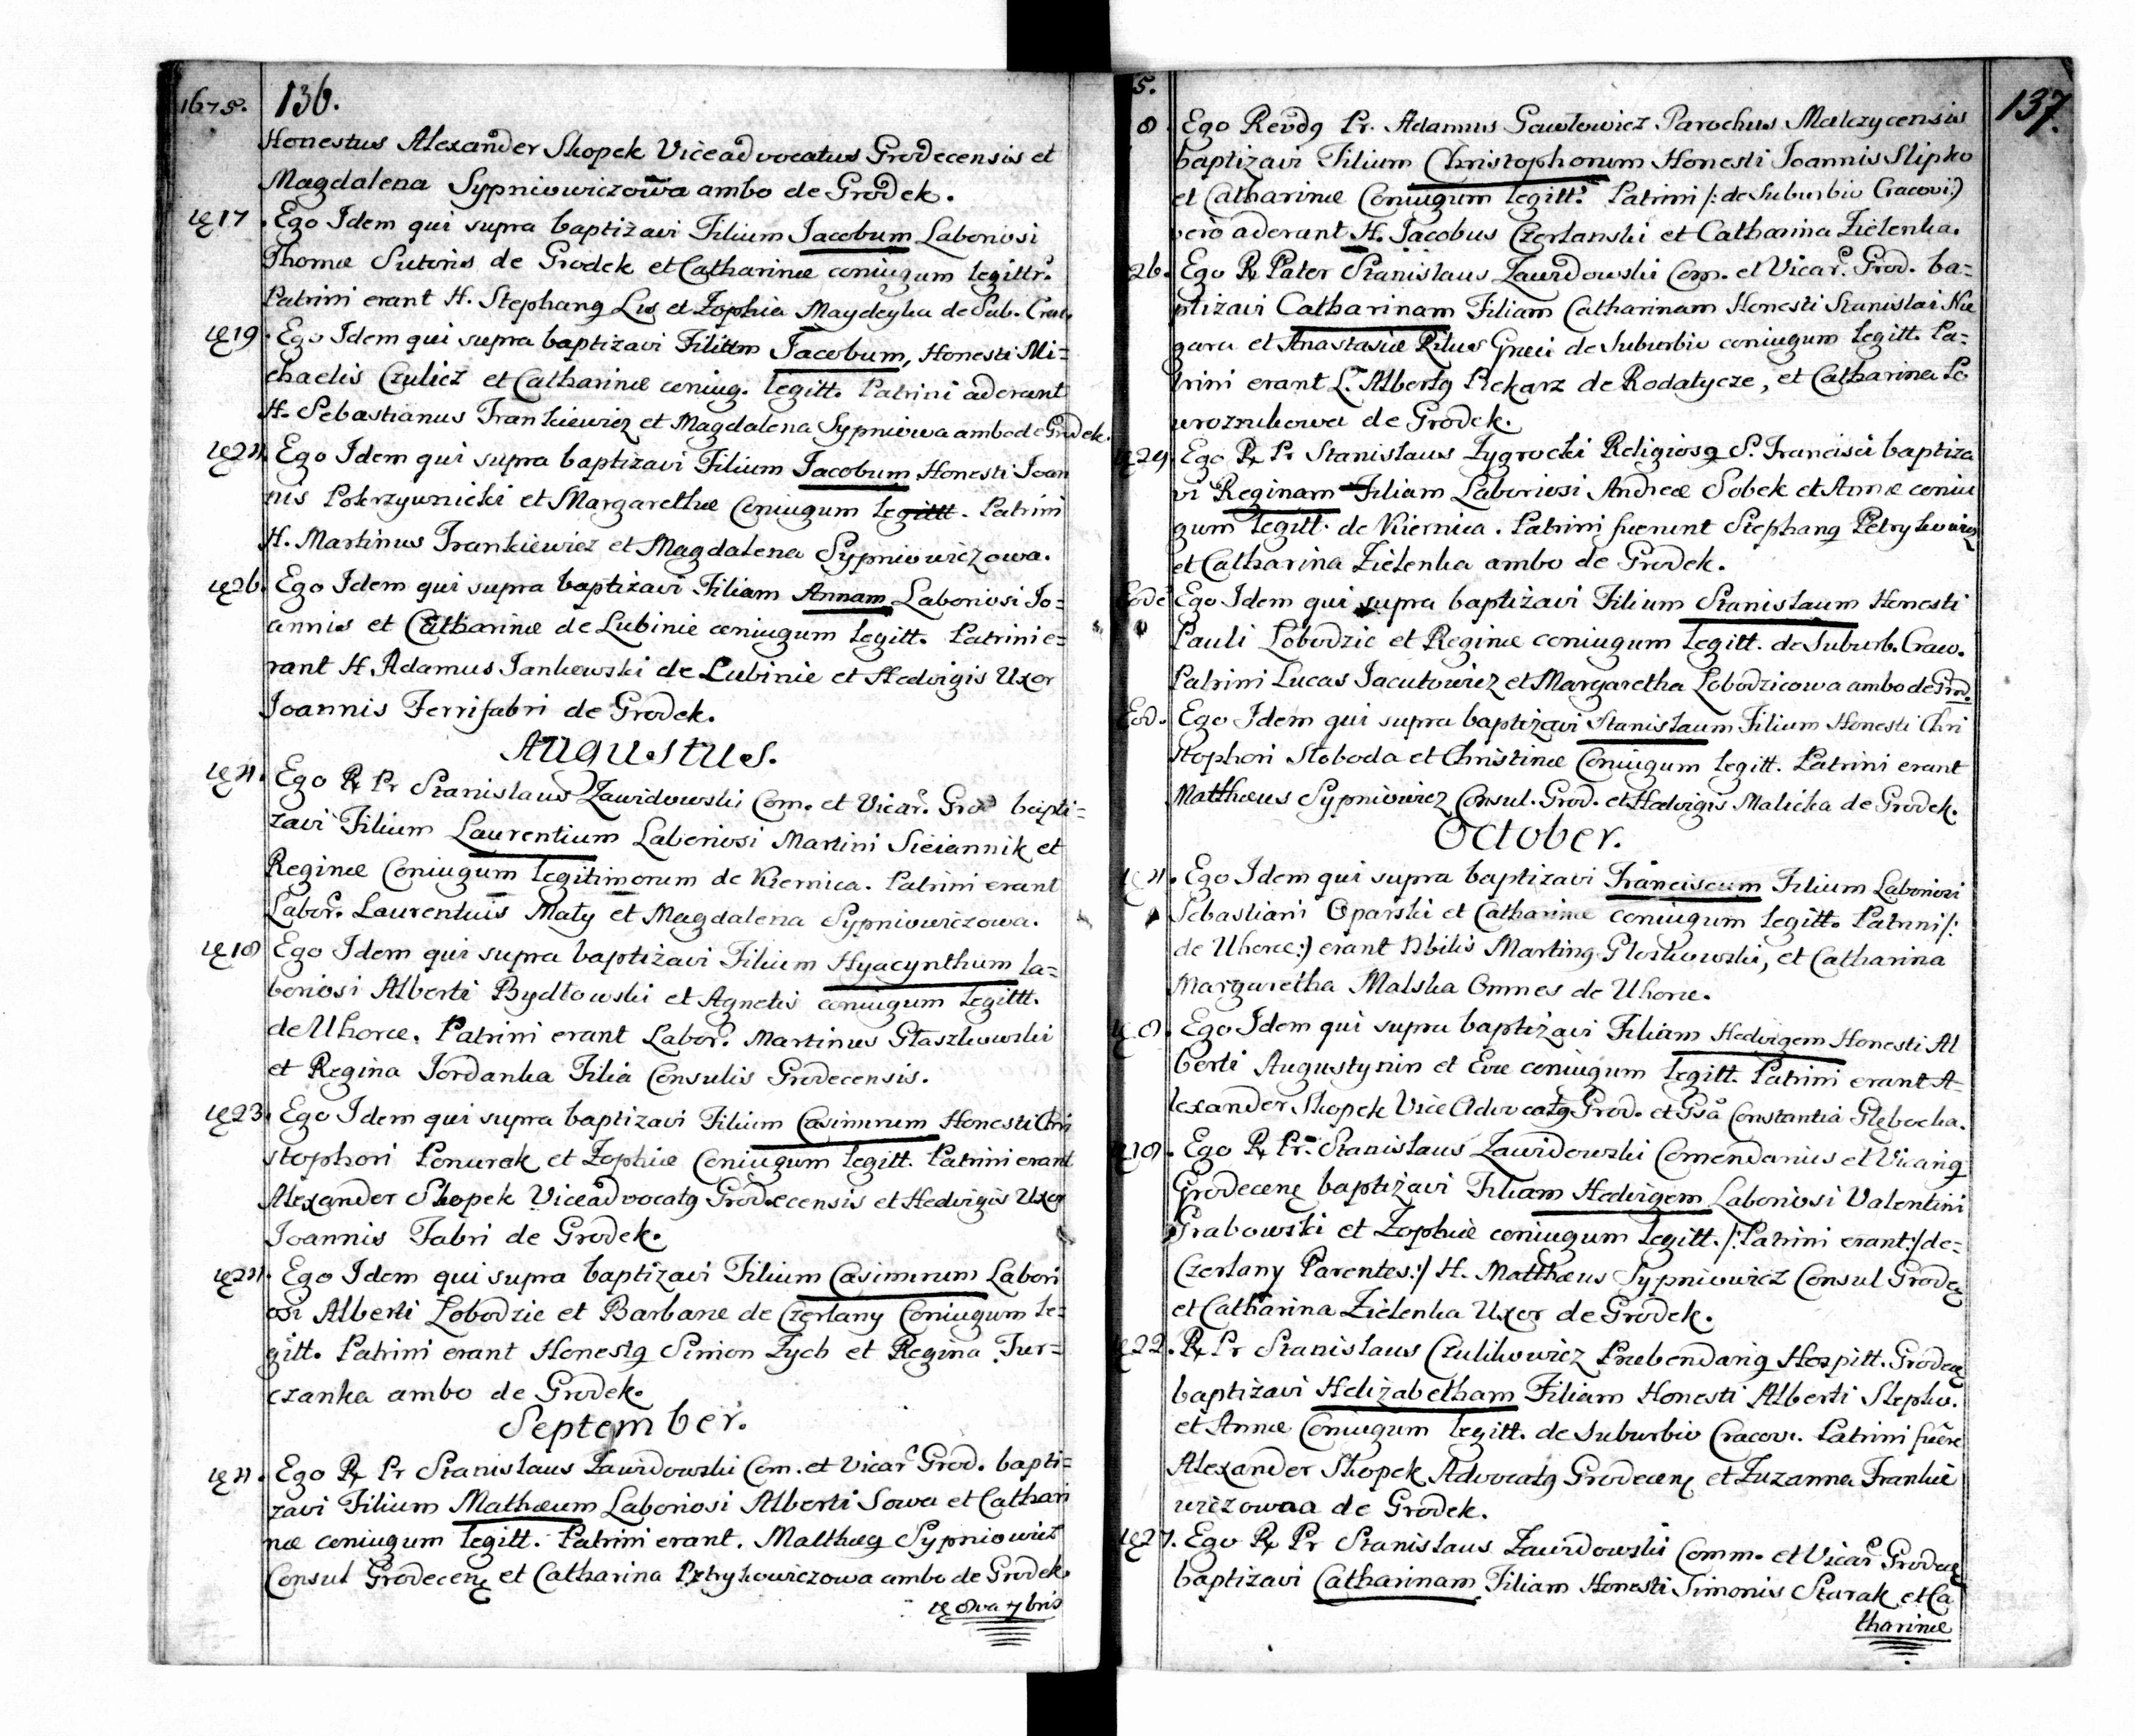 1675. 136.
Honestus Alexander Skopek Viceadvocatus Grodecensis et
Magdalena Sypniowiczowa ambo de Grodek.
17. Ego Idem qui supra baptizavi Filium Iacobum Laboriosi
Thomæ Sutoris de Grodek et Catharinæ coniugum legittr.
Patrini erant H. Stephang Lis et Zophia Maydeyka de Sub. Crac.
19. Ego Idem qui supra baptizavi Filium Iacobum, Honesti Mi=
chaelis Czulicz et Catharinæ coniug. legitt. Patrini aderant
H. Sebastianus Frankiewicz et Magdalena Sypniowa ambo de Grodek.
24. Ego Idem qui supra baptizavi Filium Iacobum Honesti Ioan
nis Pokrzywnicki et Margarethæ Coniugum legittt. Patrini
H. Martinus Frankiewicz et Magdalena Sypniowiczowa.
26. Ego Idem qui supra baptizavi Filiam Annam Laboriosi Io=
annis et Catharinæ de Lubinie coniugum legitt. Patrini e=
rant H. Adamus Jankowski de Lubinie et Hedvigis Uxor
Joannis Ferrifabri de Grodek.
Augustus.
4. Ego R Pr Stanislaus Zawidowski Com. et Vicar. Grod bapti=
zavi Filium Laurentium Laboriosi Martini Sieiannik et
Reginæ Coniugum legitimorum de Kiernica. Patrini erant
Labor. Laurentius Maty et Magdalena Sypniowiczowa.
18 Ego Idem qui supra baptizavi Filium Hyacynthum la=
boriosi Alberti Bydłowski et Agnetis coniugum legittt.
de Uhorce. Patrini erant Labor. Martinus Głaszkowski
et Regina Jordanka Filia Consulis Grodecensis.
23. Ego Idem qui supra baptizavi Filium Casimirum Honesti Chri
stophori Ponurak et Zophiæ Coniugum legitt. Patrini erant
Alexander Skopek Viceadvocatg Grodecensis et Hedvigis Uxor
Joannis Fabri de Grodek.
24. Ego Idem qui supra baptizavi Filium Casimirum Labori
osi Alberti Lobodzic et Barbaræ de Czerlany Coniugum le=
gitt. Patrini erant Honestg Simon Zych et Regina Tur=
czanka ambo de Grodek.
September.
4. Ego R Pr Stanislaus Zawidowski Com. et Vicar Grod. bapti=
zavi Filium Mathæum Laboriosi Alberti Sowa et Cathari
næ coniugum legitt. Patrini erant. Matthæg Sypniowicz
Consul Grodecen et Catharina Petrykowiczowa ambo de Grodek.
8va 7bris
5. 137.
8. Ego Revdg Pr. Adamus Gawłowicz Parochus Malczycensis
baptizavi Filium Christophorum Honesti Joannis Slipko
et Catharinæ Coniugum legitt. Patrini /: de Suburbio Cracovi:)
vero aderant H. Jacobus Czerlanski et Catharina Zielenka.
26. Ego R Pater Stanislaus Zawidowski Com. et Vicar. Grod. ba=
ptizavi Catharinam Filiam Catharinam Honesti Stanislai Nie
gara et Anastasiæ Ritus Græci de Suburbio coniugum legitt. Pa=
trini erant L. Albertg Piekarz de Rodatycze, et Catharina Po
wroznikowa de Grodek.
29. Ego R Pr Stanislaus Zygrocki Religiosg S. Francisci baptiza
vi Reginam Filiam Laboriosi Andreæ Sobek et Annæ coniu
gum legitt. de Kiernica. Patrini fuerunt Stephang Petrykowicz
et Catharina Zielenka ambo de Grodek.
Eode Ego Idem qui supra baptizavi Filium Stanislaum Honesti
Pauli Lobodzic et Reginæ coniugum legitt. de Suburb. Crac.
Patrini Lucas Jacutowicz et Margaretha Lobodzicowa ambo de Grod.
Eod. Ego Idem qui supra baptizavi Stanislaum Filium Honesti Chri
stophori Stoboda et Christinæ Coniugum legitt. Patrini erant
Matthæus Sypniowicz Consul. Grod. et Hedvigis Malicka de Grodek.
October.
4. Ego Idem qui supra baptizavi Franciscum Filium Laboriosi
Sebastiani Oparski et Catharinæ coniugum legitt. Patrini /:
de Uhorce:) erant Nbilis Marting Głoskowski, et Catharina
Margaretha Malska Omnes de Uhorce.
8. Ego Idem qui supra baptizavi Filiam Hedvigem Honesti Al
berti Augustynin et Evæ coniugum legitt. Patrini erant A=
lexander Skopek Vice Advocatg Grod. et Gsa Constantia Głębocka.
18. Ego R Pr. Stanislaus Zawidowski Comendarius et Vicarig
Grodecen baptizavi Filiam Hedvigem Laboriosi Valentini
Grabowski et Zophiæ coniugum legitt. /: Patrini erant:/ de=
Czerlany Parentes:/ H. Matthæus Sypniowicz Consul Grodec
et Catharina Zielenka Uxor de Grodek.
22. R Pr Stanislaus Czulikowicz Præbendarig Hospitt. Grodec
baptizavi Helizabetham Filiam Honesti Alberti Slepko.
et Annæ Coniugum legitt. de Suburbio Cracov. Patrini fuere
Alexander Skopek Advocatg Grodecen et Zuzanna Frankie
wiczowna de Grodek.
27. Ego R Pr Stanislaus Zawidowski Comm. et Vicar Grodec
baptizavi Catharinam Filiam Honesti Simonis Starak et Ca
tharinæ